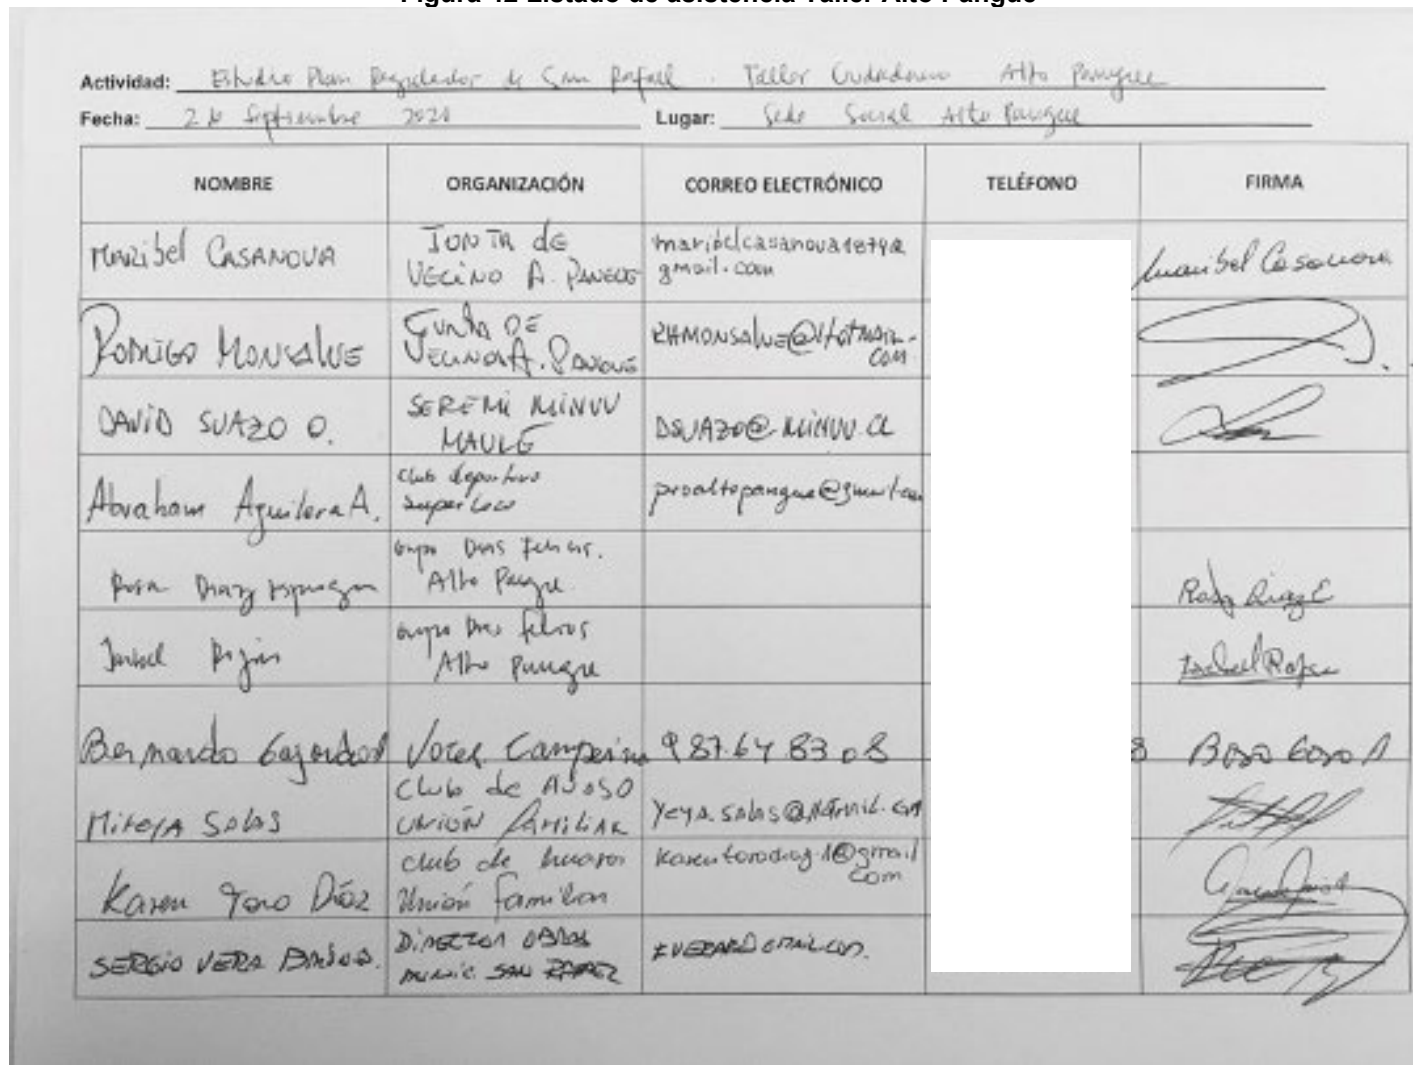 Figura 42 Listado de asistencia Taller Alto Pangue
Actividad: Estudio Plan Regulador de San Rafael . Taller Ciudadano Alto Pangue
Fecha: 2 de Septiembre 2021 Lugar: Sede Social Alto Pangue
NOMBRE ORGANIZACIÓN CORREO ELECTRÓNICO TELÉFONO FIRMA
Maribel CASANOVA JUNTA de VECINO A. PANGUE maribelcasanova1879@ gmail.com Maribel Casanova
RODRIGO MONSALVE JUNTA DE VECINOS A. PANGUE RHMONSALVE@HOTMAIL. COM
DAVID SUAZO O. SEREMI MINVU MAULE DSUAZO@MINVU.CL
Abraham Aguilera A. Club deportivo Super Loco proaltopangue@gmail.com
Rosa Diaz Grupo Dias Felices. Alto Pangue Rosa Diaz E
Isabel Rojas Grupo Dias Felices Alto Pangue Isabel Rojas
Bernardo Vocal Campesino 987.64 83 08 8
Mireya SALAS Club de UNIÓN FAMILIAR Yeya.salas@Hotmail.com
Karen Toro Díaz club de huasos Unión familiar karentorodiaz.1@gmail com
SERGIO VERA DIRECTOR OBRAS MUNIC SAN RAFAEL